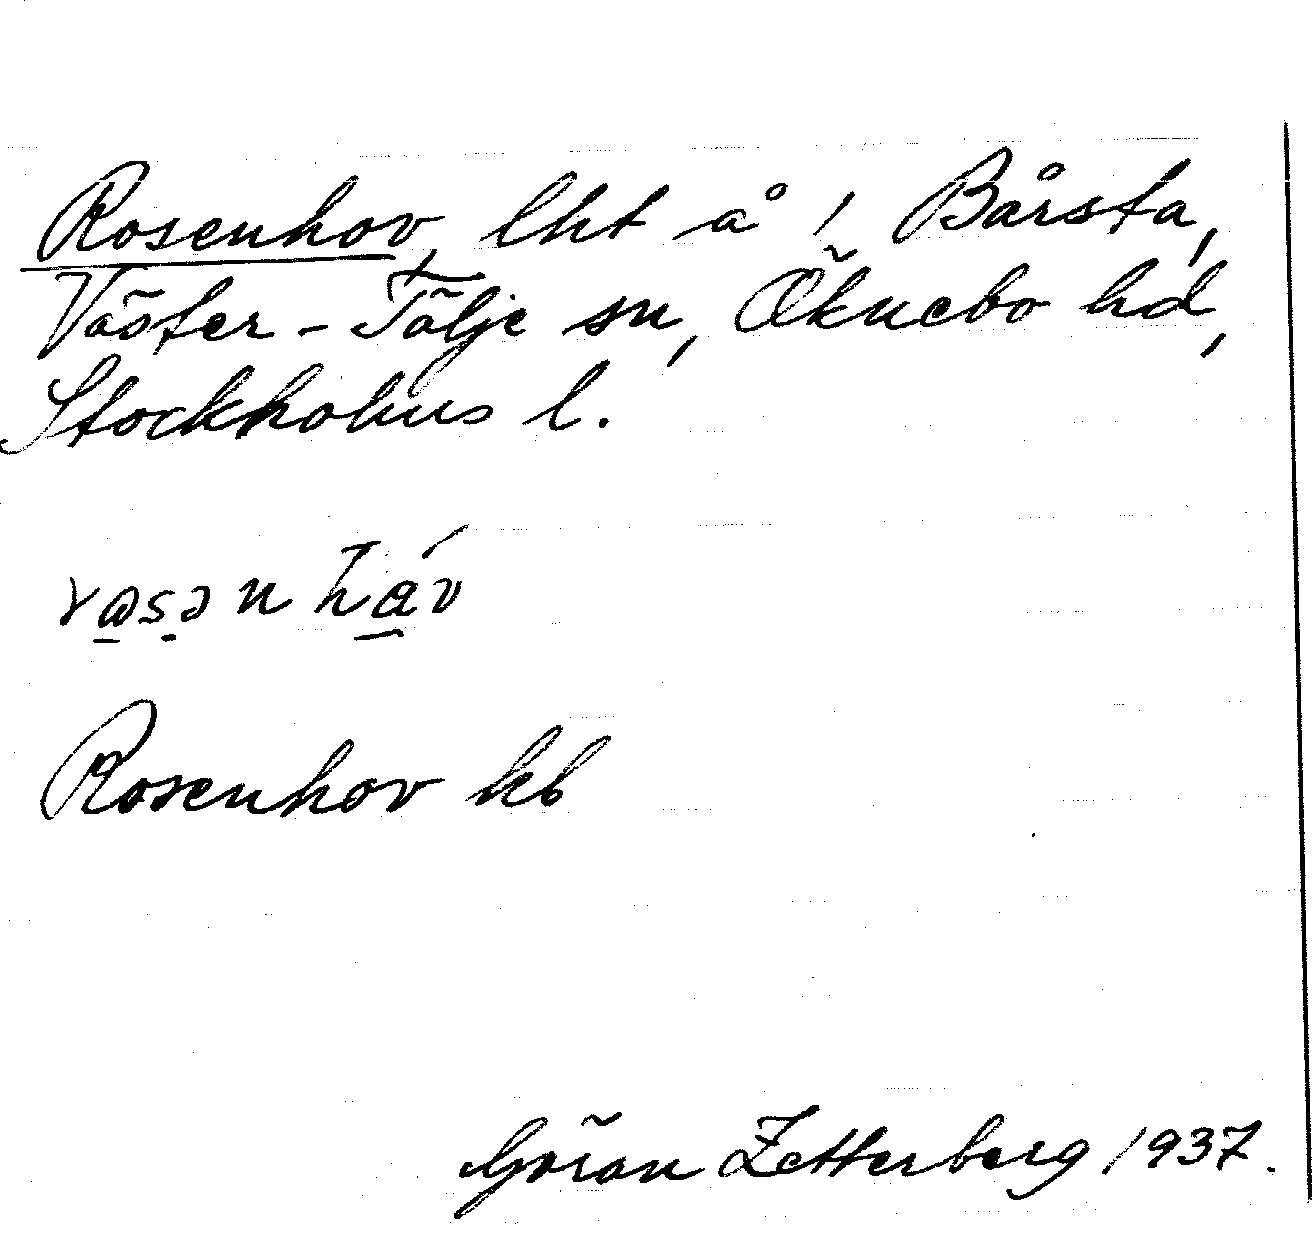 Rosenhov, lht å 1 Bårsta,
Väster-Tälje sn, Öknebo hd,
Stockholms l.
Rosenhov kb
Göran Zetterberg 1937.